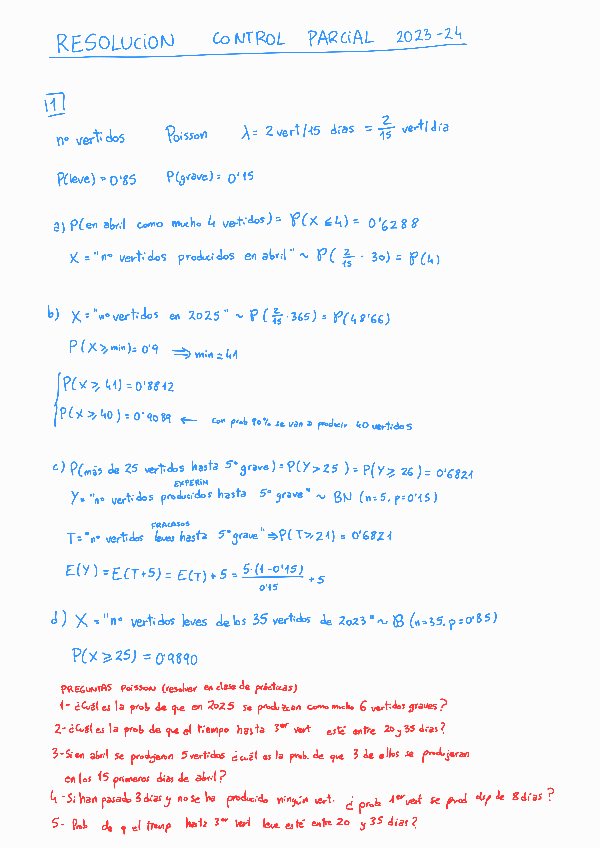 RESOLUCION CONTROL PARCIAL 2023-24
11
nº vertidos Poisson λ = 2 vert/15 días = 2/15 vert/día
P(leve) = 0'85 P(grave) = 0'15
a) P(en abril como mucho 4 vertidos) = P(X ≤ 4) = 0'6288
X = "nº vertidos producidos en abril" ~ P(2/15 · 30) = P(4)
b) X = "nº vertidos en 2025" ~ P(2/15 · 365) = P(48'66)
P(X ≥ min) = 0'9 ⟹ min = 41
P(X ≥ 41) = 0'8812
P(X ≥ 40) = 0'9089 ← con prob 90% se van a producir 40 vertidos
c) P(más de 25 vertidos hasta 5º grave) = P(Y > 25) = P(Y ≥ 26) = 0'6821
EXPERIM
Y = "nº vertidos producidos hasta 5º grave" ~ BN (n=5, p=0'15)
FRACASOS
T = "nº vertidos leves hasta 5º grave" ⇒ P(T ≥ 21) = 0'6821
E(Y) = E(T+5) = E(T) + 5 = 5·(1-0'15)/0'15 + 5
d) X = "nº vertidos leves de los 35 vertidos de 2023" ~ B (n=35, p=0'85)
P(X ≥ 25) = 0'9890
PREGUNTAS POISSON (resolver en clase de prácticas)
1- ¿Cuál es la prob de que en 2025 se produzcan como mucho 6 vertidos graves?
2- ¿Cuál es la prob de que el tiempo hasta 3er vert esté entre 20 y 35 días?
3- Si en abril se produjeron 5 vertidos ¿cuál es la prob. de que 3 de ellos se produjeran
en los 15 primeros días de abril?
4- Si han pasado 3 días y no se ha producido ningún vert. ¿prob 1er vert se prod desp de 8 días?
5- Prob de q el tiemp hasta 3er vert leve esté entre 20 y 35 días?